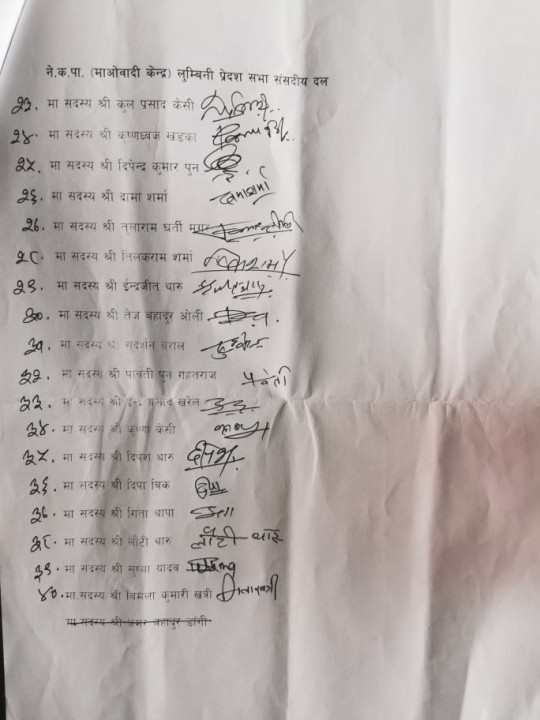 ने.क.पा. (माओवादी केन्द्र) लुम्बिनी प्रदेश सभा संसदीय दल
२३. मा सदस्य श्री कुल प्रसाद केसी
२४. मा सदस्य श्री कृष्णध्वज खड्का
२५. मा सदस्य श्री दिपेन्द्र कुमार पुन
२६. मा सदस्य श्री दामा शर्मा दामाशर्मा
२७. मा सदस्य श्री तुलाराम घर्ती मगर
२८. मा सदस्य श्री तिलकराम शर्मा
२९. मा सदस्य श्री ईन्द्रजीत थारु
३०. मा सदस्य श्री तेज बहादुर ओली
३१. मा सदस्य श्री सुदर्शन बराल
३२. मा सदस्य श्री पार्वती पुन गहतराज पार्वती
३३. मा सदस्य श्री प्रसाद खरेल
३४. मा सदस्य श्री कृष्णा केसी
३५. मा सदस्य श्री दिपेश थारु
३६. मा सदस्य श्री दिपा बिक
३७. मा सदस्य श्री थापा
३८. मा सदस्य श्री लौटी थारु लौटी थारु
३९. मा सदस्य श्री सुष्मा यादव
४०. मा सदस्य श्री बिमला कुमारी खत्री
मा सदस्य श्री अमर बहादुर डाँगी